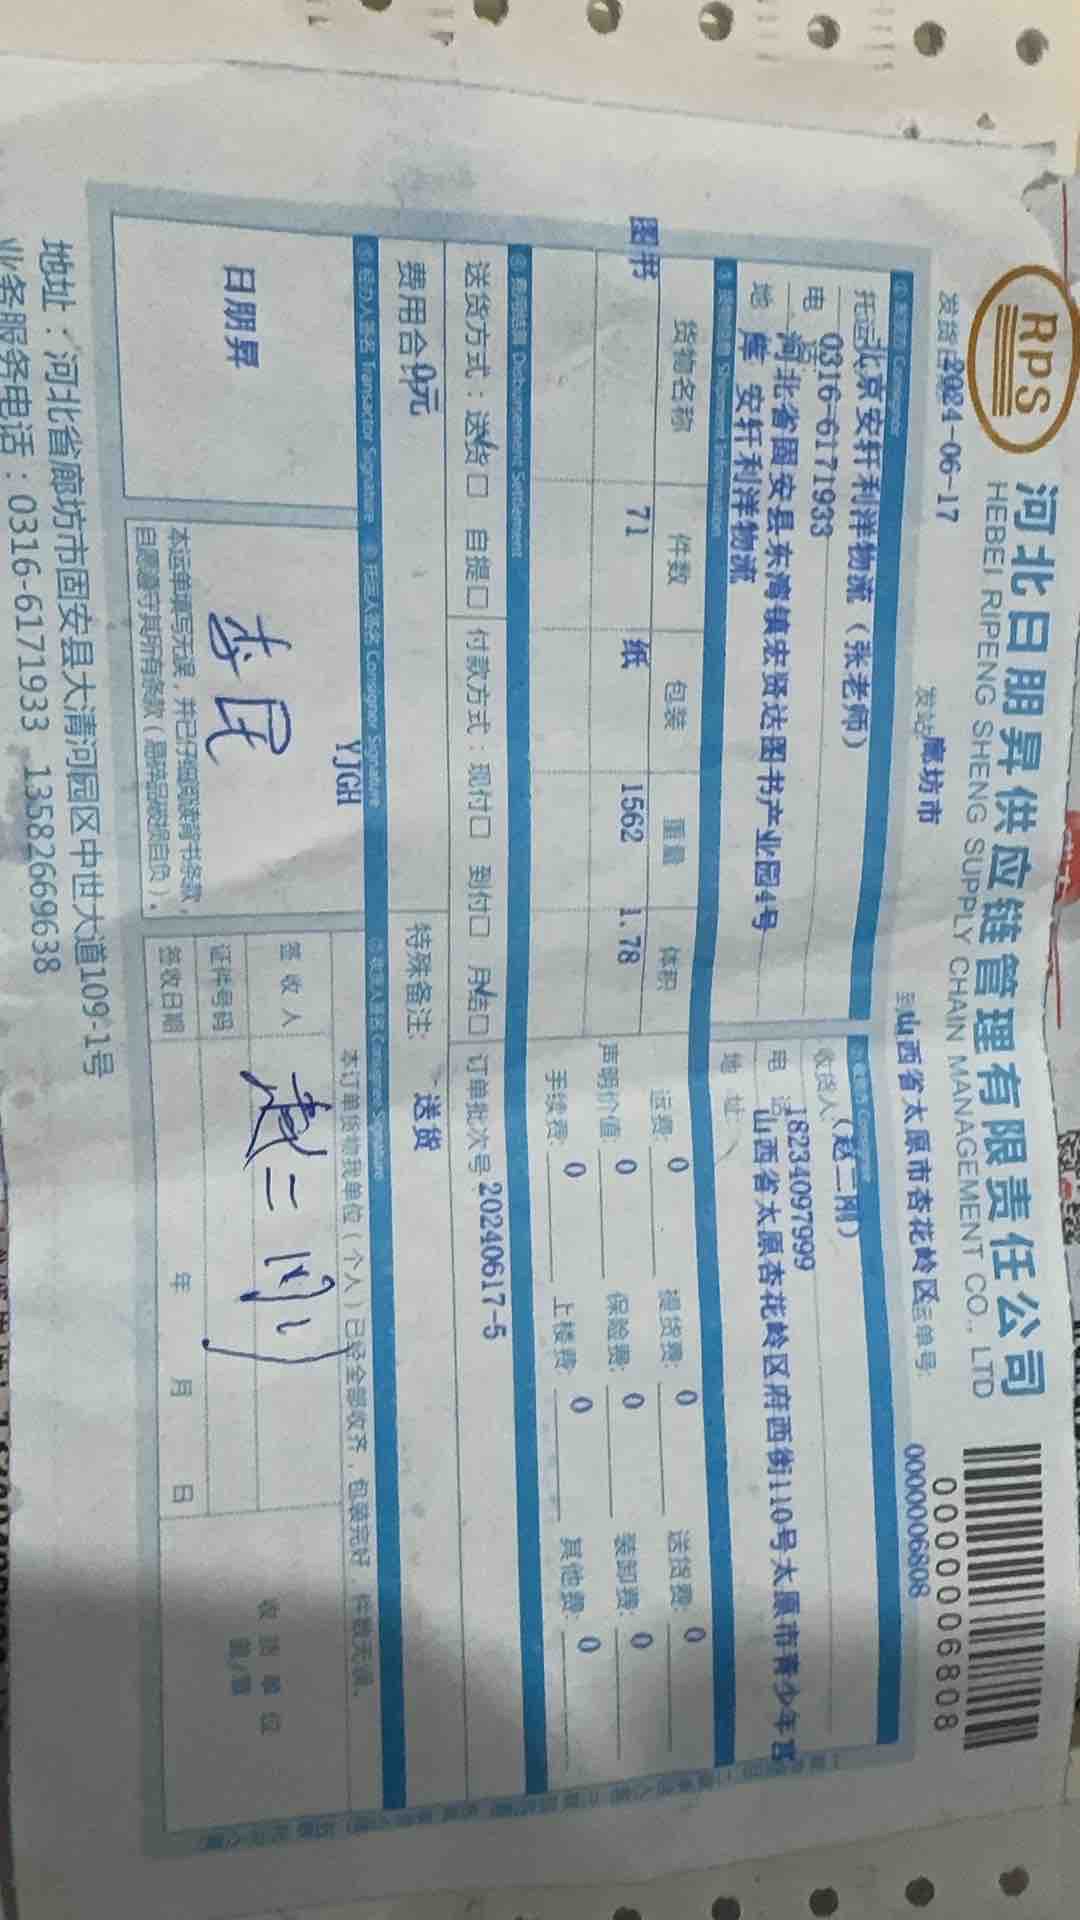 RPS
河北日朋昇供应链管理有限责任公司
HEBEI RIPENG SHENG SUPPLY CHAIN MANAGEMENT CO., LTD
0000006808
发货日期 2024-06-17 发站 廊坊市 至 山西省太原市杏花岭区 运单号: 0000006808
① 发货方 Consignor
托运 北京安轩利洋物流（张老师）
电 0316-6171933
河北省固安县东湾镇宏贤达图书产业园4号
地 库 安轩利洋物流
Consignee
收货人: （赵二刚）
电 话 18234097999
山西省太原杏花岭区府西街110号太原市青少年宫
地 址
③ 货物信息 Shipment Information
货物名称 件数 包装 重量 体积
图书 71 纸 1562 1.78
运费: 0 提货费: 0 送货费: 0
声明价值: 0 保险费: 0 装卸费: 0
手续费: 0 上楼费: 0 其他费: 0
④ 费用结算 Disbursement Settlement
送货方式：送货☑ 自提☐ 付款方式：现付☐ 到付☐ 月结☑ 订单批次号 20240617-5
费用合 0元 特殊备注: 送货
⑤ 经办人签名 Transactor Signature ⑥ 托运人签名 Consignor Signature ⑦ 收货人签名 Consignee Signature
日朋昇
YJGH
李民
本运单填写无误，并已仔细阅读背书条款，
自愿遵守其所有条款（易碎品破损自负）。
本订单货物我单位（个人）已经全部收齐，包装完好，件数无误。
签收人 赵二刚
证件号码
签收日期 年 月 日
收货单位
盖/章
地址：河北省廊坊市固安县大清河园区中世大道109-1号
业务服务电话：0316-6171933 13582669638